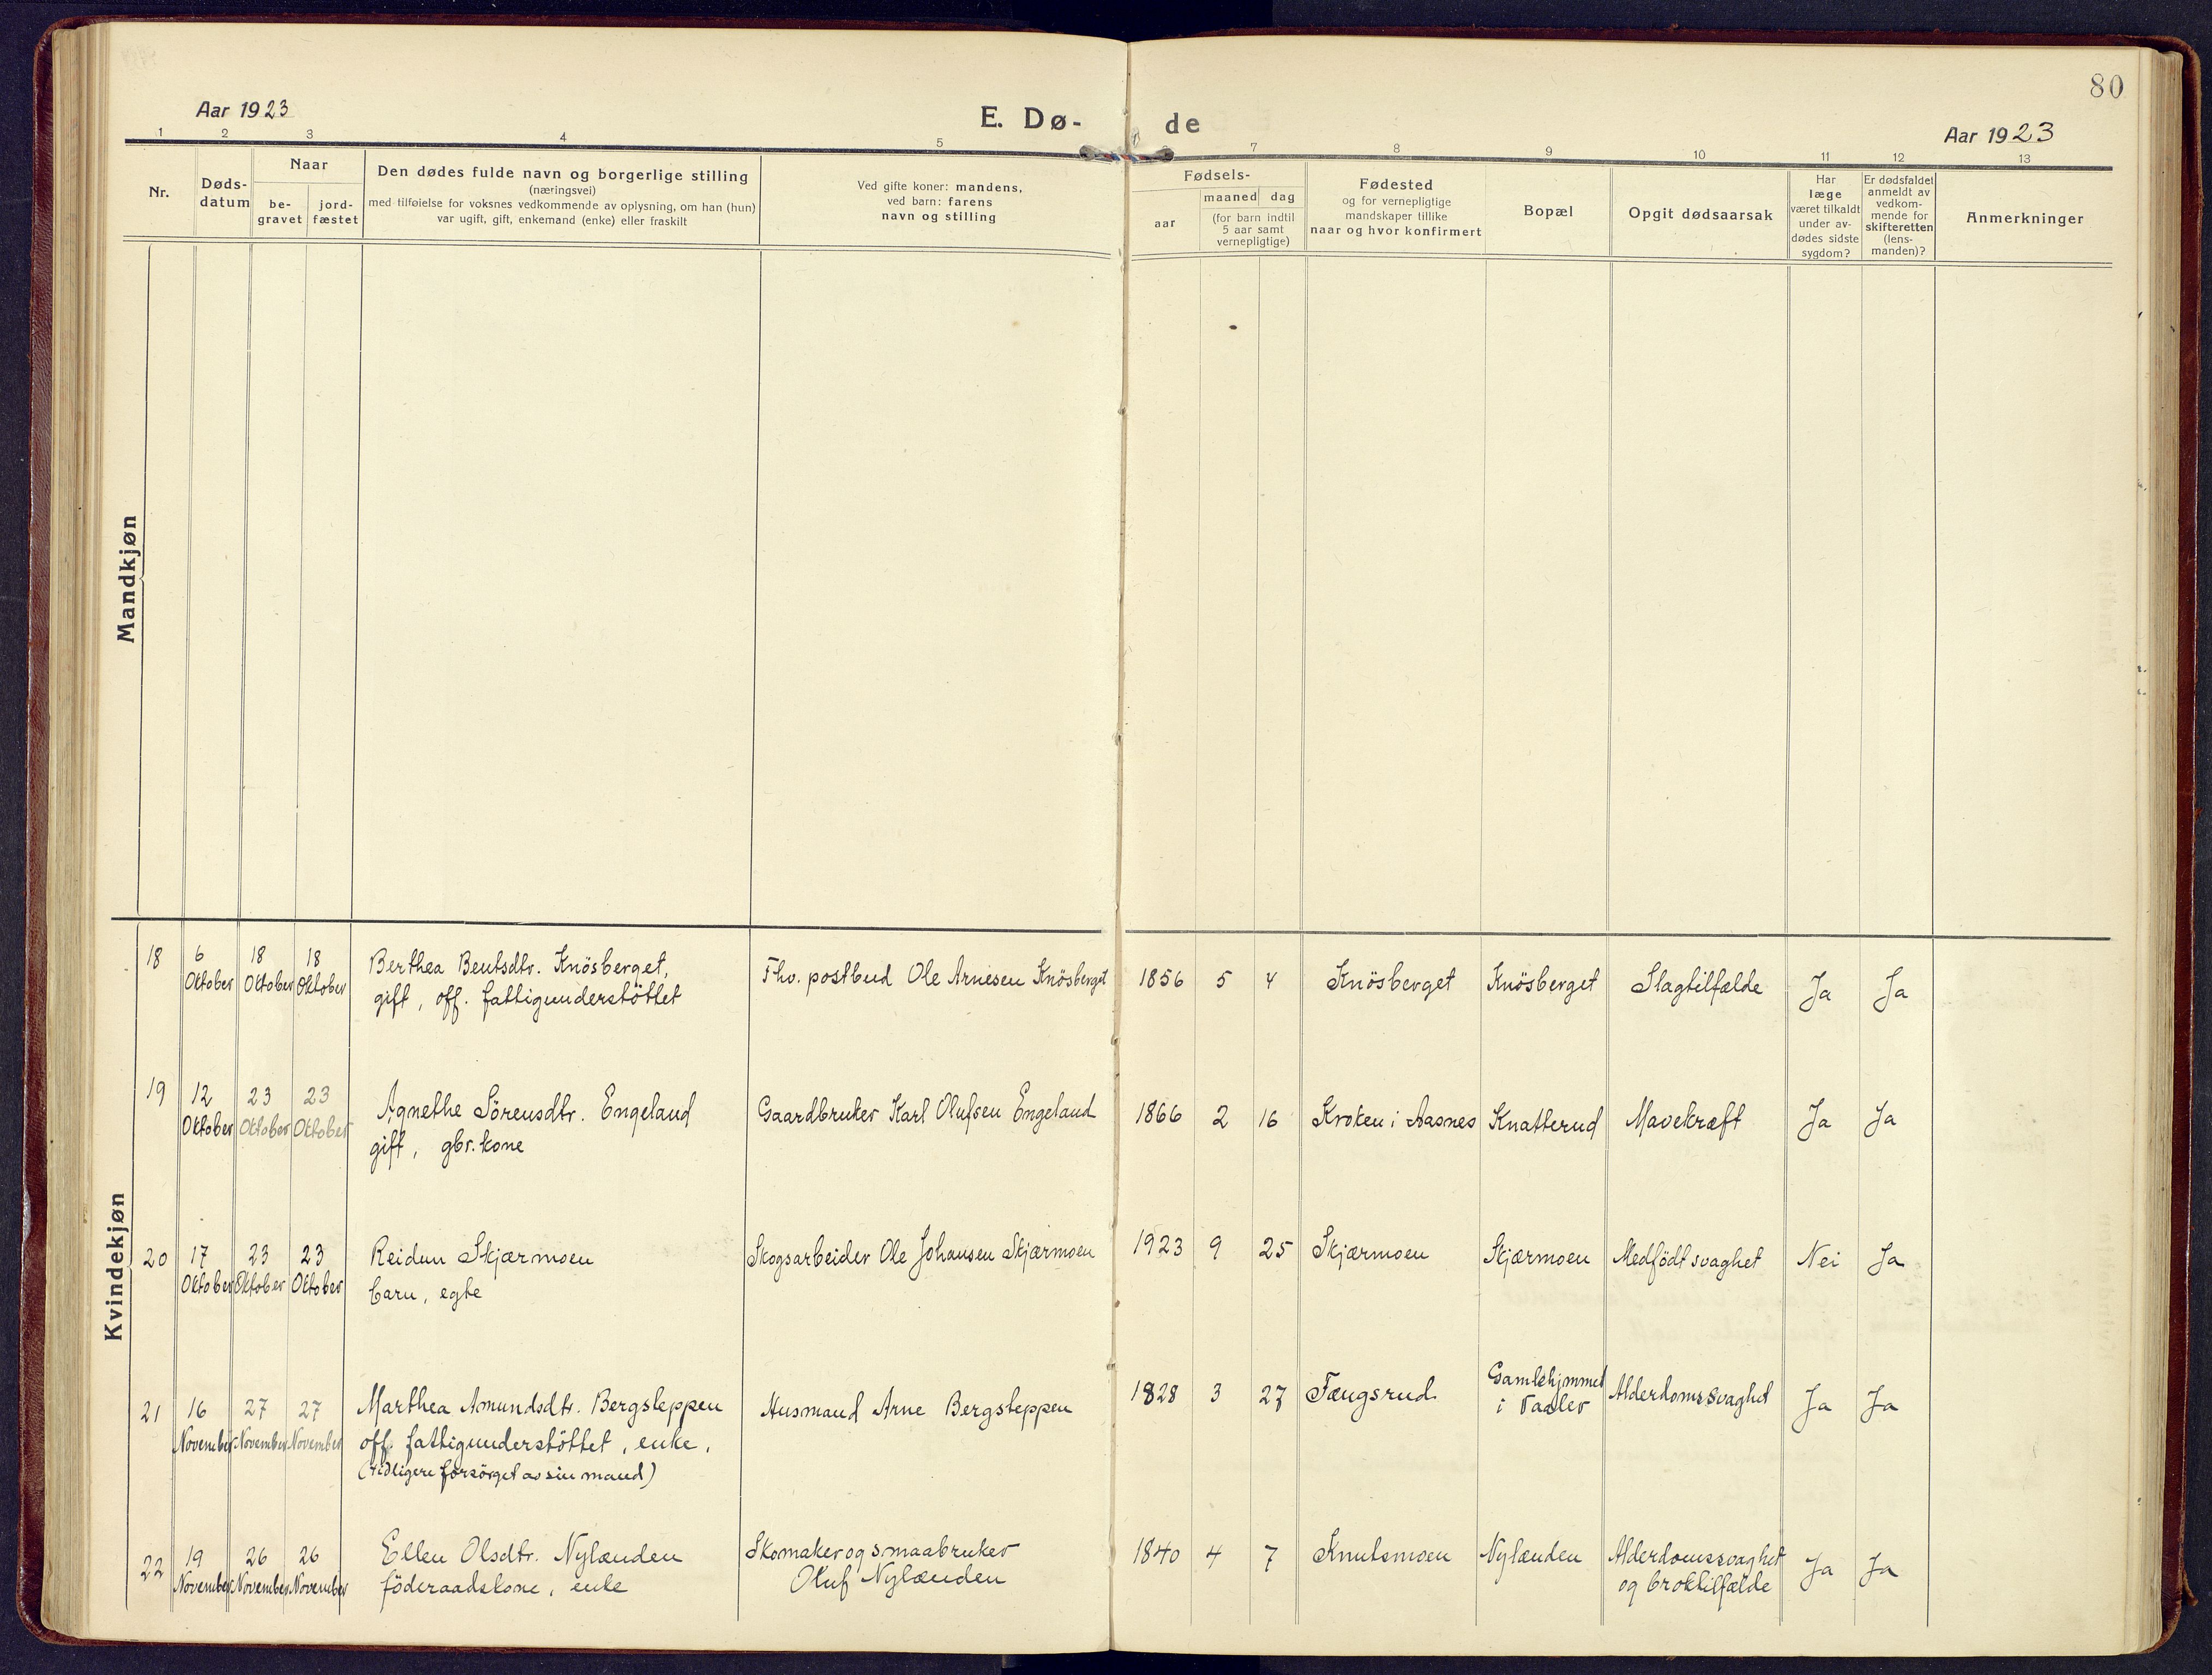 80
Aar 1923
E. Dø-
de
Aar 1923
1 2 3 4 5 6 7 8 9 10 11 12 13
Nr.
Døds-
datum
Naar
be-
gravet
jord-
fæstet
Den dødes fulde navn og borgerlige stilling
(næringsvei)
med tilføielse for voksnes vedkommende av oplysning, om han (hun)
var ugift, gift, enkemand (enke) eller fraskilt
Ved gifte koner: mandens,
ved barn: farens
navn og stilling
Fødsels-
aar
maaned dag
(for barn indtil
5 aar samt
vernepligtige)
Fødested
og for vernepligtige
mandskaper tillike
naar og hvor konfirmert
Bopæl
Opgit dødsaarsak
Har
læge
været tilkaldt
under av-
dødes sidste
sygdom?
Er dødsfaldet
anmeldt av
vedkom-
mende for
skifteretten
(lens-
manden)?
Anmerkninger
Mandkjøn
Kvindekjøn
18
6
Oktober
18
Oktober
18
Oktober
Berthea Bentsdtr. Knösberget,
gift, off. fattigunderstöttet
Fhv. postbud Ole Arnesen Knösberget
1856 5 4
Knösberget
Knösberget
Slagtilfælde
Ja
Ja
19
12
Oktober
23
Oktober
23
Oktober
Agnethe Sörensdtr. Engeland
gift, gbr. kone
Gaardbruker Karl Olufsen Engeland
1866 2 16
Kroken i Aasnes
Knatterud
Mavekræft
Ja
Ja
20
17
Oktober
23
Oktober
23
Oktober
Reidun Skjærmoen
barn, egte
Skogsarbeider Ole Johansen Skjærmoen
1923 9 25
Skjærmoen
Skjærmoen
Medfödt svaghet
Nei
Ja
21
16
November
27
November
27
November
Marthea Amundsdtr. Bergsleppen
off. fattigunderstöttet, enke,
(tidligere forsörget av sin mand)
Husmand Arne Bergsleppen
1828 3 27
Fængsrud
Gamlehjemmet
i Vaaler
Alderdomssvaghet
Ja
Ja
22
19
November
26
November
26
November
Ellen Olsdtr. Nylænden
föderaadskone, enke
Skomaker og smaabruker
Oluf Nylænden
1840 4 7
Knutsmoen
Nylænden
Alderdomssvaghet
og broktilfælde
Ja
Ja